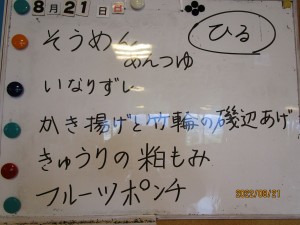 8月21日 日
ひる
そうめん
めんつゆ
いなりずし
かき揚げと竹輪の磯辺あげ
きゅうりの粕もみ
フルーツポンチ
2022/08/21